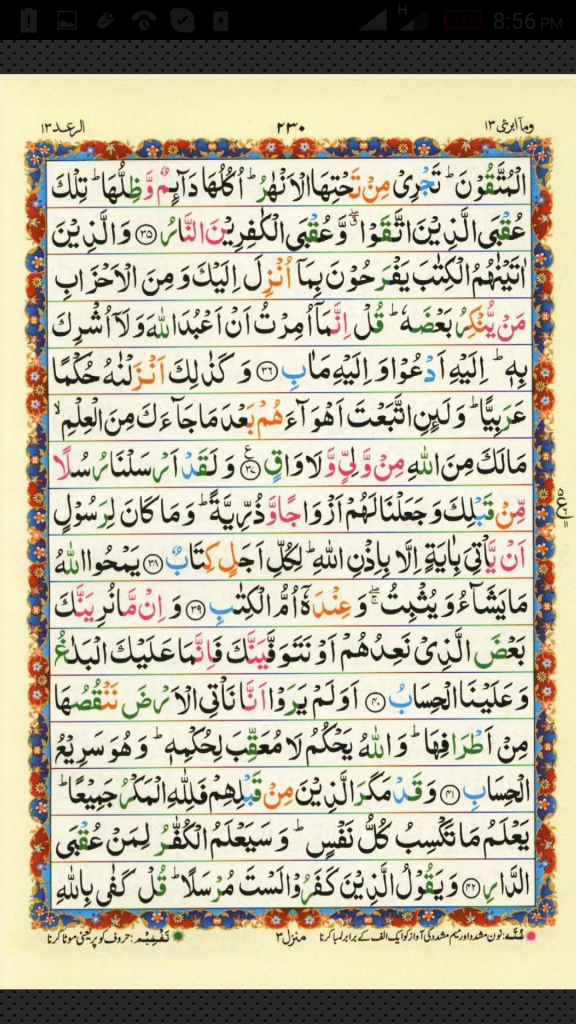 8:56 PM
H
14%
الرعد ١٣
٢٣٠
ومآ ابرئ ١٣
الْمُتَّقُوْنَ ؕ تَجْرِیْ مِنْ تَحْتِهَا الْاَنْهٰرُ ؕ اُكُلُهَا دَآىِٕمٌ وَّظِلُّهَا ؕ تِلْكَ
عُقْبَی الَّذِیْنَ اتَّقَوْا ۖۗ وَّعُقْبَی الْكٰفِرِیْنَ النَّارُ ﴿۳۵﴾ وَالَّذِیْنَ
اٰتَیْنٰهُمُ الْكِتٰبَ یَفْرَحُوْنَ بِمَاۤ اُنْزِلَ اِلَیْكَ وَمِنَ الْاَحْزَابِ
مَنْ یُّنْكِرُ بَعْضَهٗ ؕ قُلْ اِنَّمَاۤ اُمِرْتُ اَنْ اَعْبُدَ اللّٰهَ وَلَاۤ اُشْرِكَ
بِهٖ ؕ اِلَیْهِ اَدْعُوْا وَاِلَیْهِ مَاٰبِ ﴿۳۶﴾ وَكَذٰلِكَ اَنْزَلْنٰهُ حُكْمًا
عَرَبِیًّا ؕ وَلَىِٕنِ اتَّبَعْتَ اَهْوَآءَهُمْ بَعْدَ مَا جَآءَكَ مِنَ الْعِلْمِ ۙ
مَا لَكَ مِنَ اللّٰهِ مِنْ وَّلِیٍّ وَّلَا وَاقٍ ﴿۳۷﴾ ع وَلَقَدْ اَرْسَلْنَا رُسُلًا
مِّنْ قَبْلِكَ وَجَعَلْنَا لَهُمْ اَزْوَاجًا وَّذُرِّیَّةً ؕ وَمَا كَانَ لِرَسُوْلٍ
اَنْ یَّاْتِیَ بِاٰیَةٍ اِلَّا بِاِذْنِ اللّٰهِ ؕ لِكُلِّ اَجَلٍ كِتَابٌ ﴿۳۸﴾ یَمْحُوا اللّٰهُ
مَا یَشَآءُ وَیُثْبِتُ ۖۚ وَعِنْدَهٗۤ اُمُّ الْكِتٰبِ ﴿۳۹﴾ وَاِنْ مَّا نُرِیَنَّكَ
بَعْضَ الَّذِیْ نَعِدُهُمْ اَوْ نَتَوَفَّیَنَّكَ فَاِنَّمَا عَلَیْكَ الْبَلٰغُ
وَعَلَیْنَا الْحِسَابُ ﴿۴۰﴾ اَوَلَمْ یَرَوْا اَنَّا نَاْتِی الْاَرْضَ نَنْقُصُهَا
مِنْ اَطْرَافِهَا ؕ وَاللّٰهُ یَحْكُمُ لَا مُعَقِّبَ لِحُكْمِهٖ ؕ وَهُوَ سَرِیْعُ
الْحِسَابِ ﴿۴۱﴾ وَقَدْ مَكَرَ الَّذِیْنَ مِنْ قَبْلِهِمْ فَلِلّٰهِ الْمَكْرُ جَمِیْعًا ؕ
یَعْلَمُ مَا تَكْسِبُ كُلُّ نَفْسٍ ؕ وَسَیَعْلَمُ الْكُفّٰرُ لِمَنْ عُقْبَی
الدَّارِ ﴿۴۲﴾ وَیَقُوْلُ الَّذِیْنَ كَفَرُوْا لَسْتَ مُرْسَلًا ؕ قُلْ كَفٰی بِاللّٰهِ
غُنَّه: نون مشدد اور میم مشدد کی آواز کو ایک الف کے برابر لمبا کرنا
منزل ٣
تفخیم: حروف کو پر یعنی موٹا کرنا